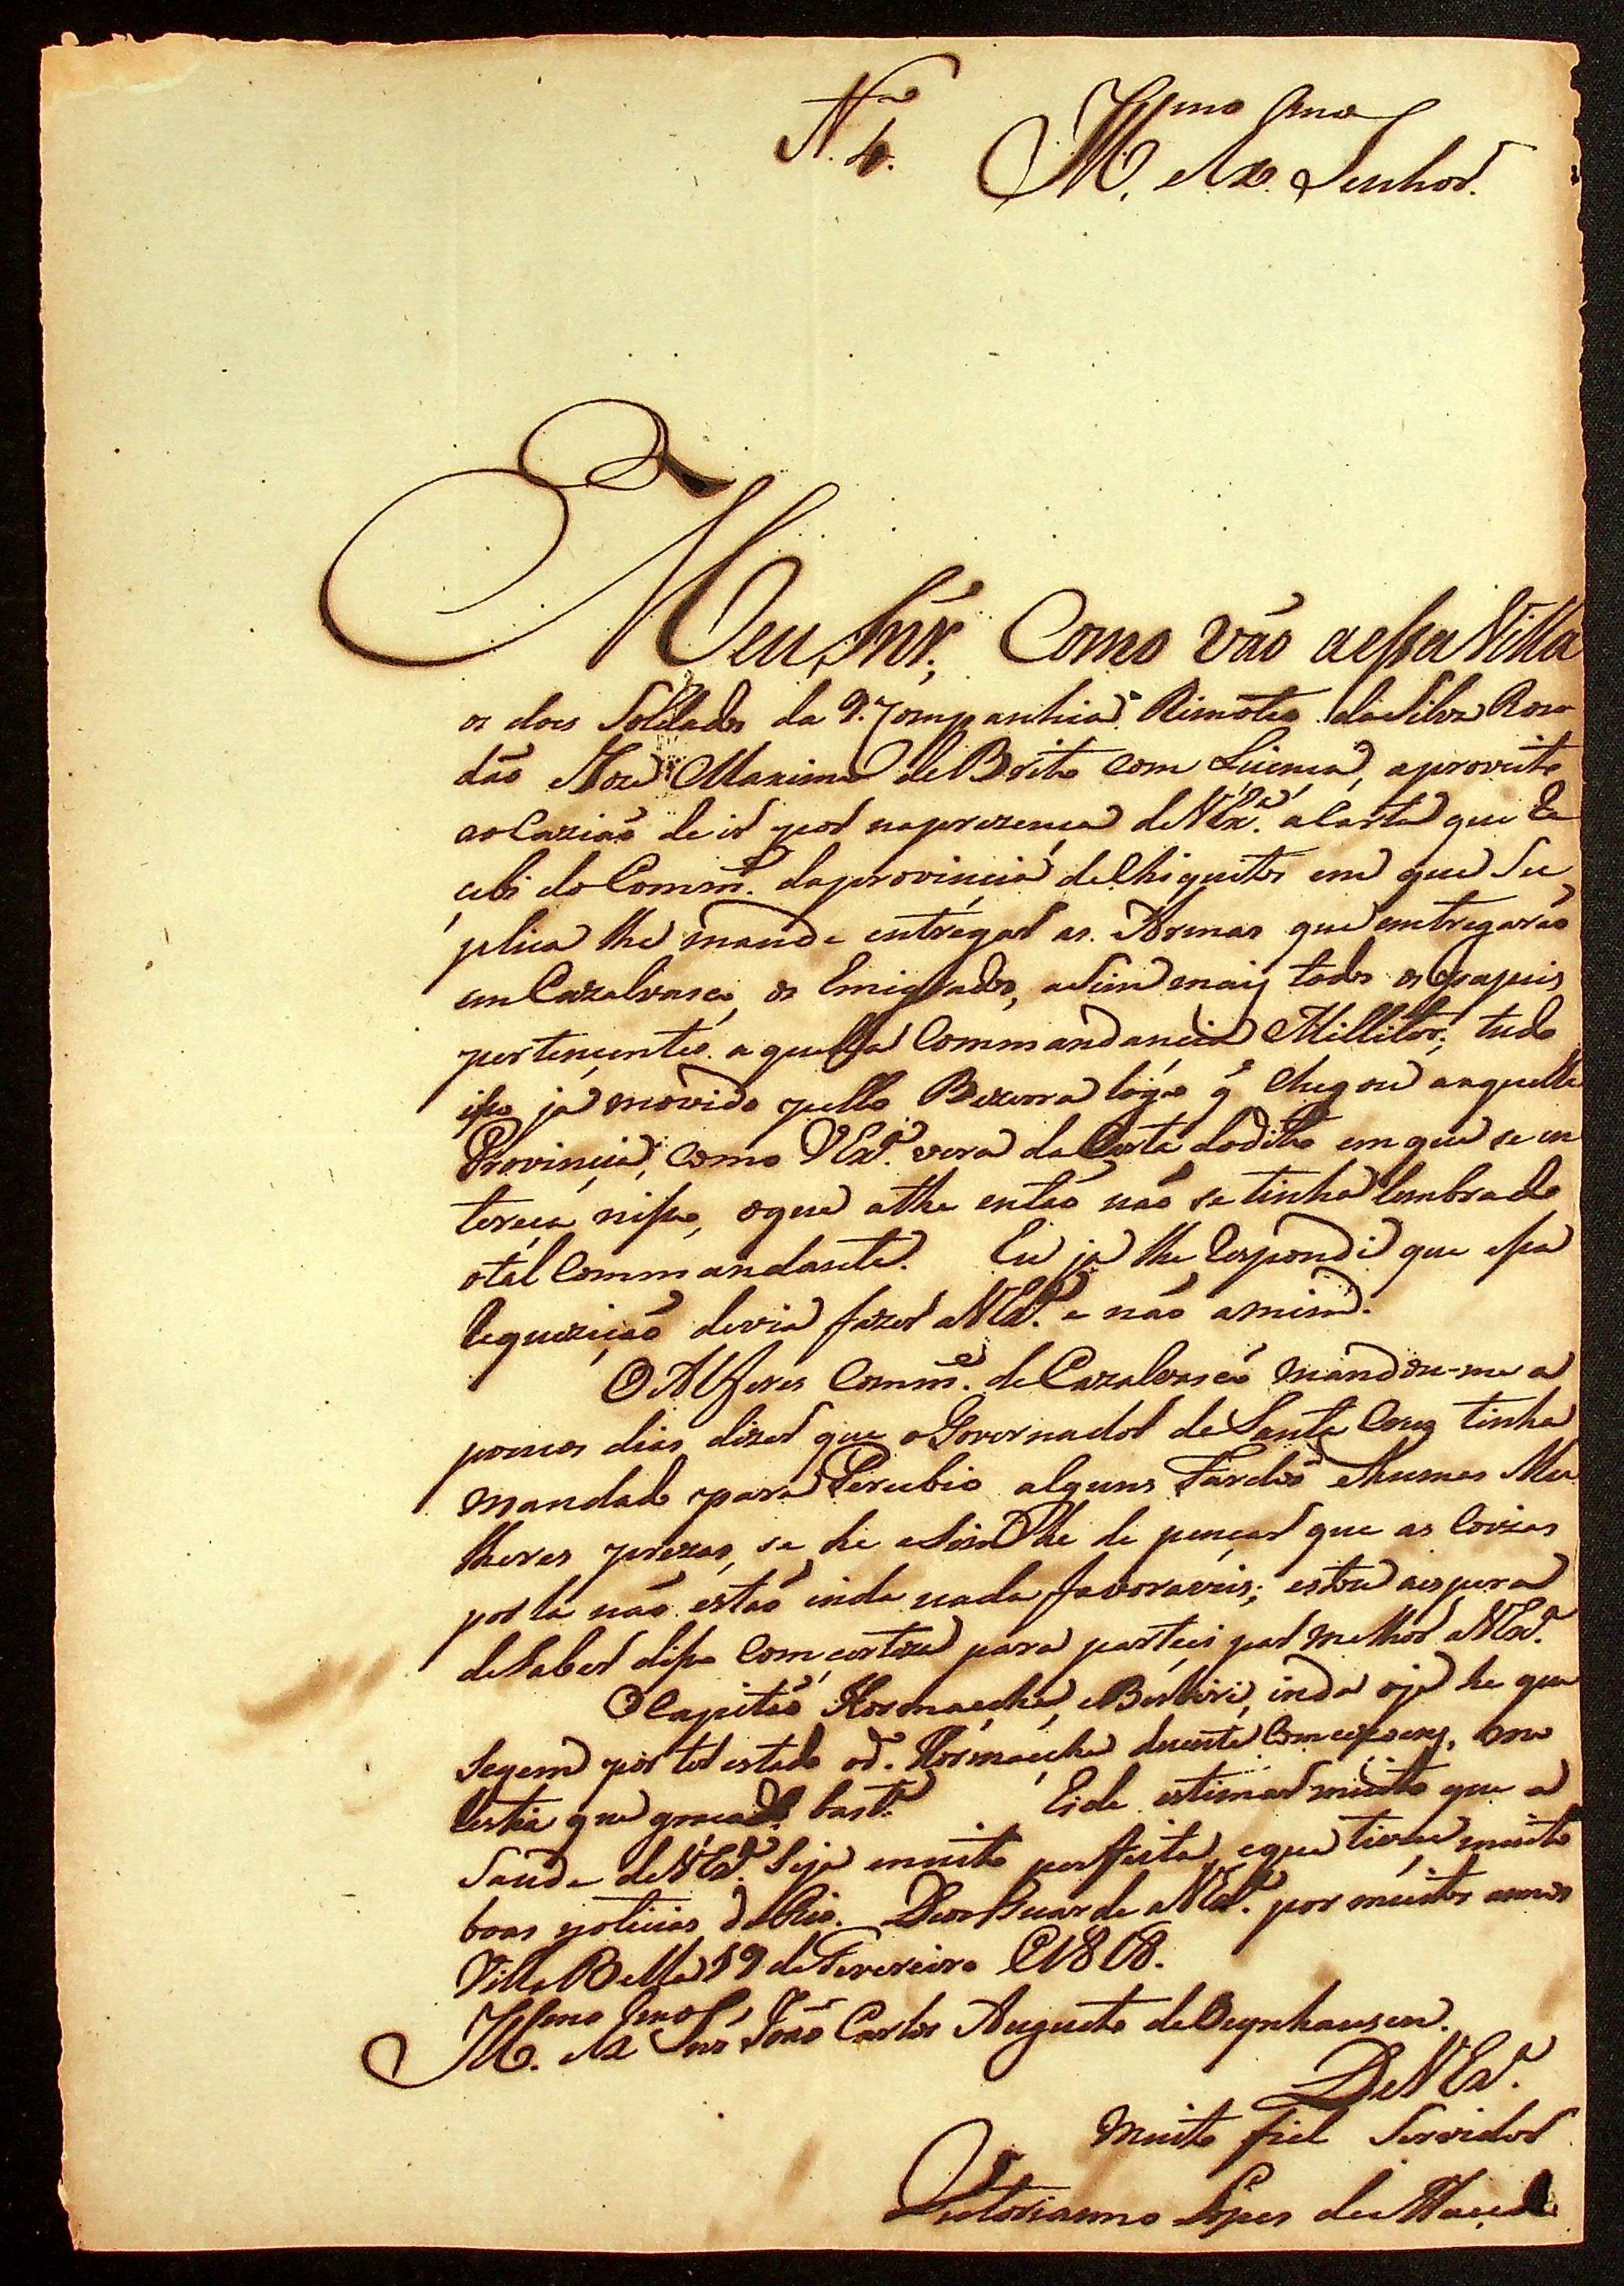 N.º 4.
Ill.mo e Ex.mo Senhor.
Meu Snr', Como vão a essa Villa
os dois Soldados da 9.ª Companhia Rimoteo da Silva Ron
dão e Joze Maximo de Brito com Licença, aproveito
a ocazião de ir por na prezença de V Ex.ª a Carta que Re
cebi do Comm.e da provincia de Chiquitos em que Su
plica lhe mande entregar as Armas que entregarão
em Cazalvasco os Emigrados, asim mais todos os papeis
pertencentes aquella Commandancia Millitar; tudo
isso já movido pello Bezerra lógo q' chegou aaquella
Provincia, como V Ex.ª vera da Carta do dito em que se in
tereça nisso, o que athe então não se tinha lembrado
o tal Commandante. Eu ja lhe Respondi que essa
Requezição devia fazer a V Ex.ª e não a mim.
O Alferes Comm.e de Cazalvasco mandou-me a
poucos dias dizer que o Governador de Santa Cruz tinha
mandado para Perubio alguns Fardos e humas Mu
lheres prezas, se he asim he de pençar que as Coizas
por lá não estão inda nada favoraveis; estou aespera
de Saber disso com certeza para partecipar melhor a V Ex.ª
O Capitão Hormaechea, e Berbiri, inda oje he que
segem por ter estado o d.º Hormaechea duente Com , mo
lestia que graça bast.e Eide estimar muito que a
Saude de V Ex.ª Seja muito perfeita, e que tivece muito
boas noticias do Rio. Deos Guarde a V Ex.ª por muitos annos
Villa Bella 19 de Fevereiro 1818.
Ill.mo e Ex.mo Snr' João Carlos Augusto de Oeynhausen.
De V Ex.ª
Muito fiel Servidor
Victorianno Lopes de Macedo